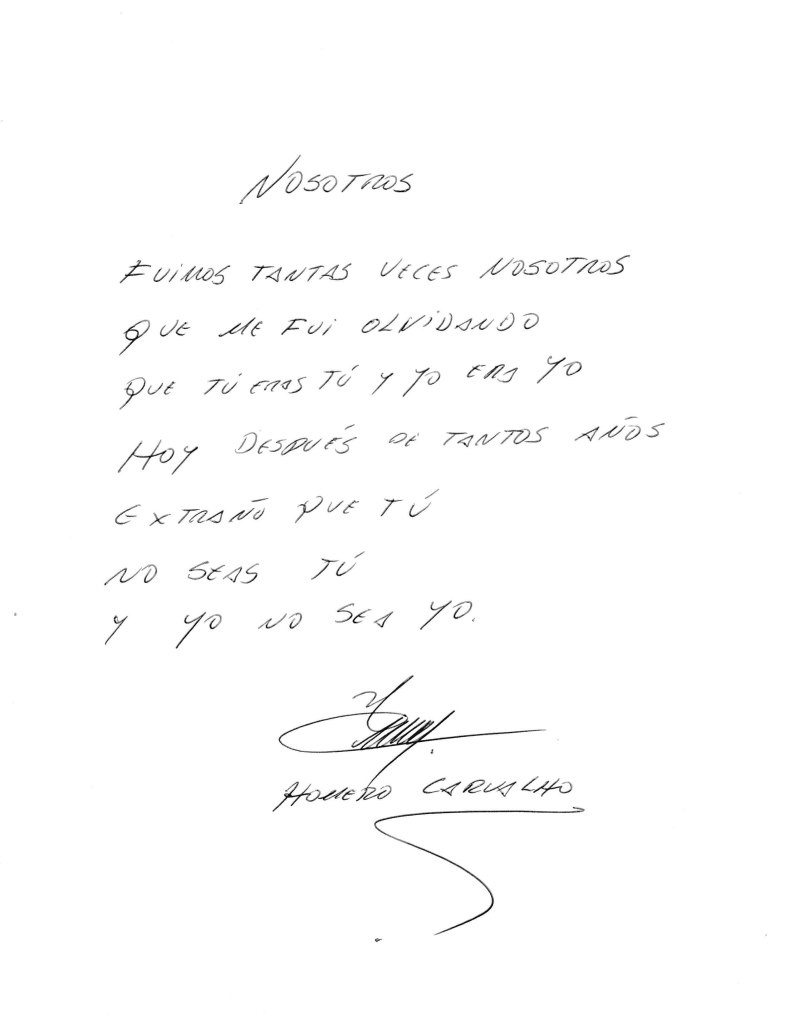 NOSOTROS
FUIMOS TANTAS VECES NOSOTROS
QUE ME FUI OLVIDANDO
QUE TÚ ERAS TÚ Y YO ERA YO
HOY DESPUÉS DE TANTOS AÑOS
EXTRAÑO QUE TÚ
NO SEAS TÚ
Y YO NO SEA YO.
HOMERO CARVALHO